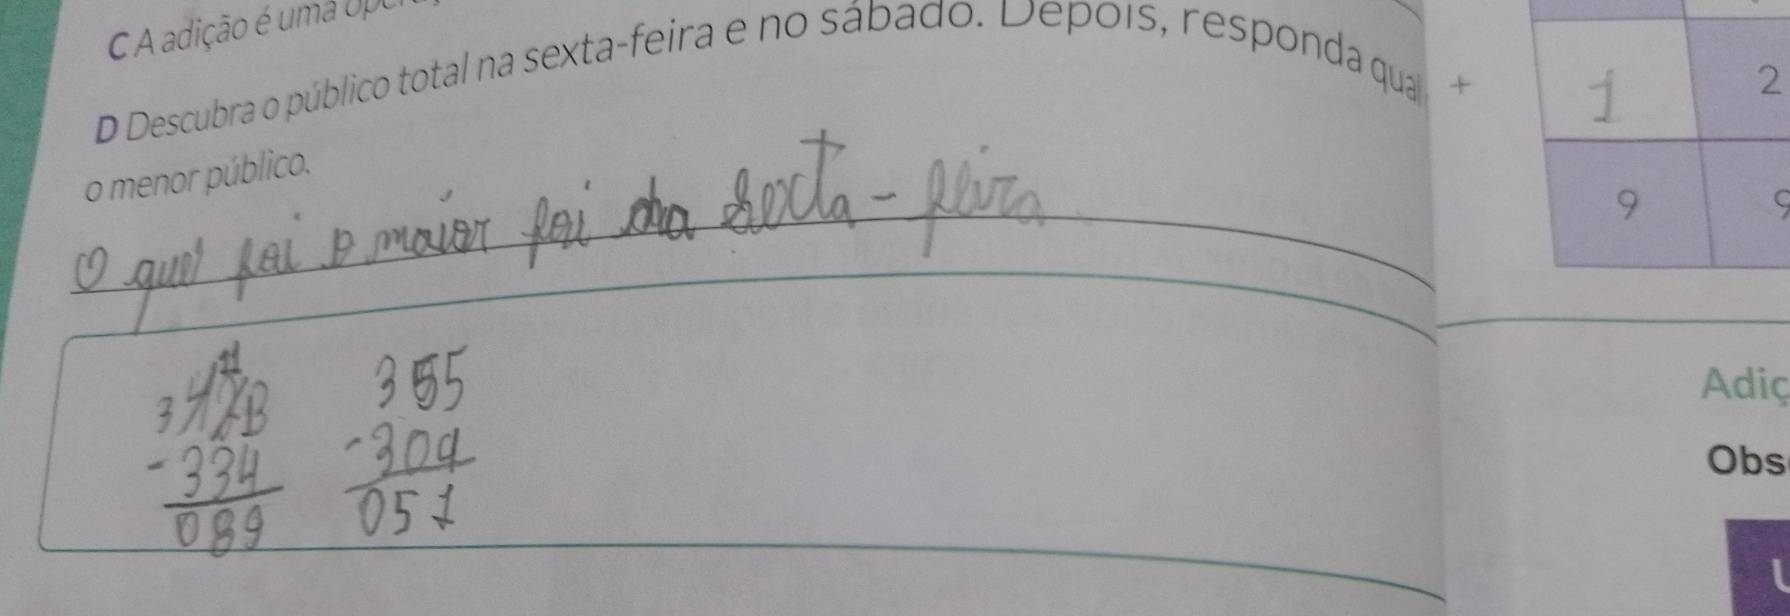 C A adição é uma
D Descubra o público total na sexta-feira e no sábado. Depois, responda qual
o menor público.
O que foi o maior foi na sexta-feira
11
3 4 2 3
- 334
089
355
- 304
051
+ 1 2
9 9
Adiç
Obs